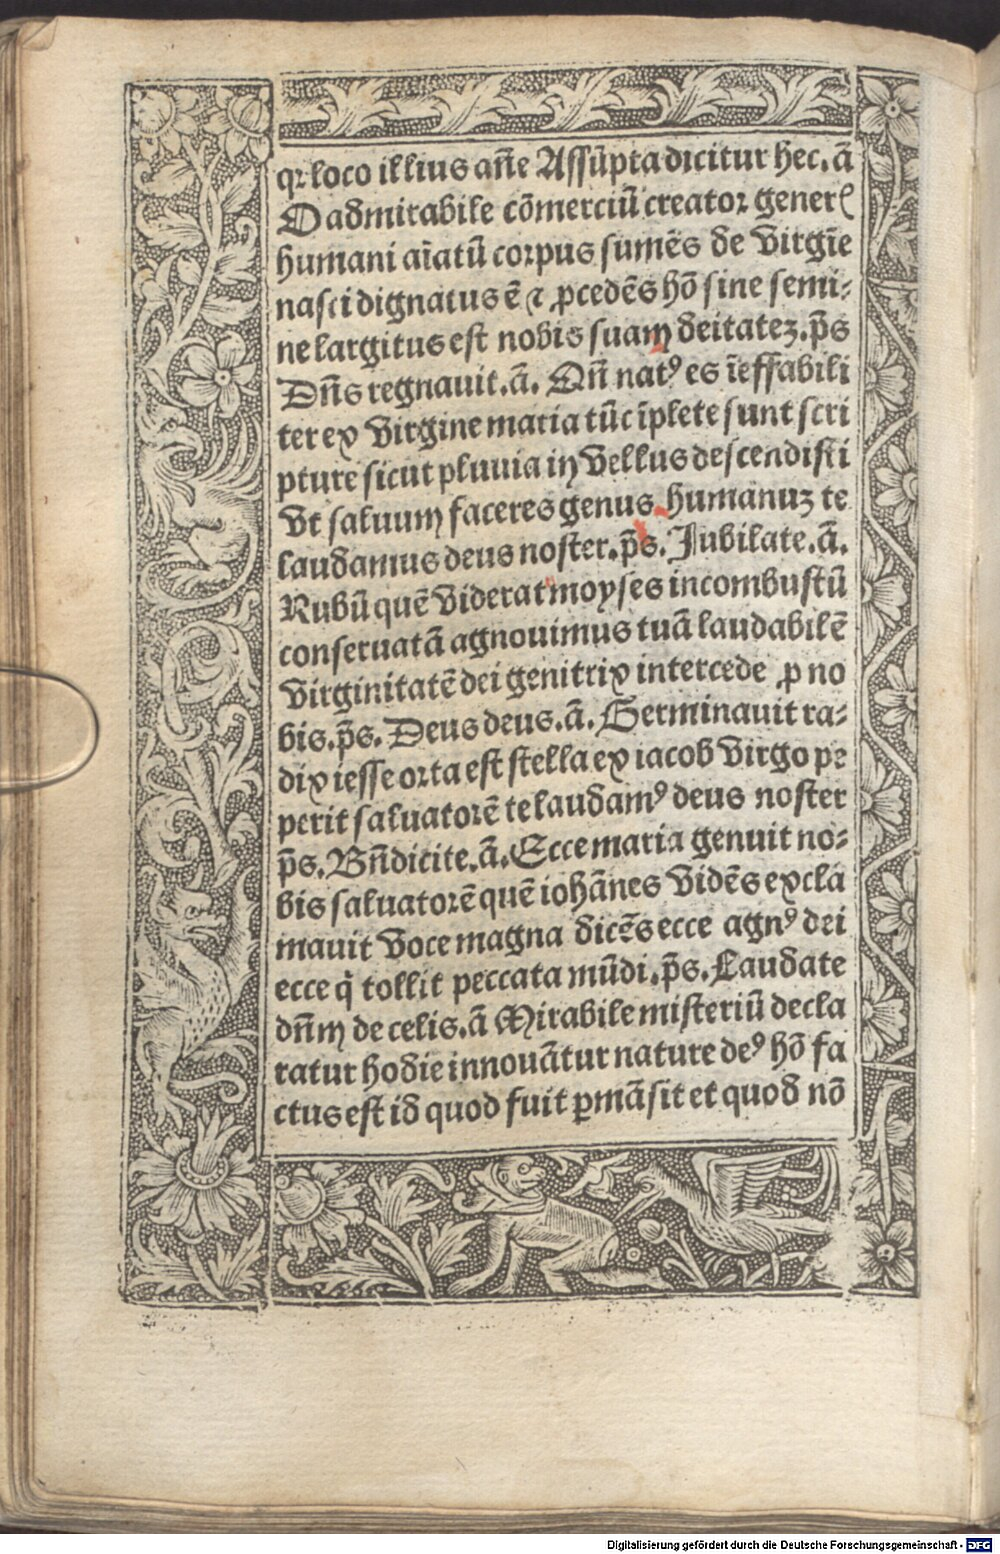 qꝛ loco illius an̄e Assūpta dicitur hec. ā
O admirabile cōmerciū creator generꝭ
humani aīatū corpus sumēs de virgīe
nasci dignatus ē ⁊ ꝓcedēs hō sine semi-
ne largitus est nobis suam deitatez. p̄s
Dn̄s regnauit. ā. Qn̄ natꝰ es īeffabili
ter ex virgine maria tūc īplete sunt scri
pture sicut pluuia in vellus descendisti
vt saluum faceres genus humanuz te
laudamus deus noster. p̄s. Jubilate. ā.
Rubū quē viderat moyses incombustū
conseruatā agnouimus tuā laudabilē
virginitatē dei genitrix intercede ꝓ no
bis. p̄s. Deus deus. ā. Germinauit ra-
dix iesse orta est stella ex iacob virgo pe
perit saluatorē te laudamꝰ deus noster
p̄s. Bn̄dicite. ā. Ecce maria genuit no-
bis saluatorē quē iohānes vidēs excla
mauit voce magna dicēs ecce agnꝰ dei
ecce q̇ tollit peccata mūdi. p̄s. Laudate
dn̄m de celis. ā Mirabile misteriū decla
ratur hodie innouātur nature deꝰ hō fa
ctus est id quod fuit ꝑmāsit et quod nō
Digitalisierung gefördert durch die Deutsche Forschungsgemeinschaft - DFG